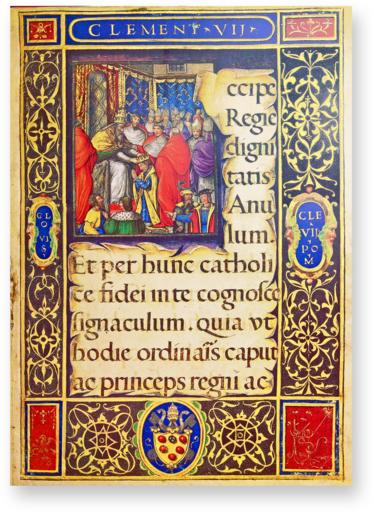 CLEMENT·VII·
ccipe
Regie
digni
tatis
Anu
lum.
Et per hunc catholi
ce fidei in te cognosce
signaculum. quia vt
hodie ordinaīs caput
ac princeps regni ac
GLO
VI
S
CLE
VII
PO
M